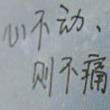 心不动、
则不痛